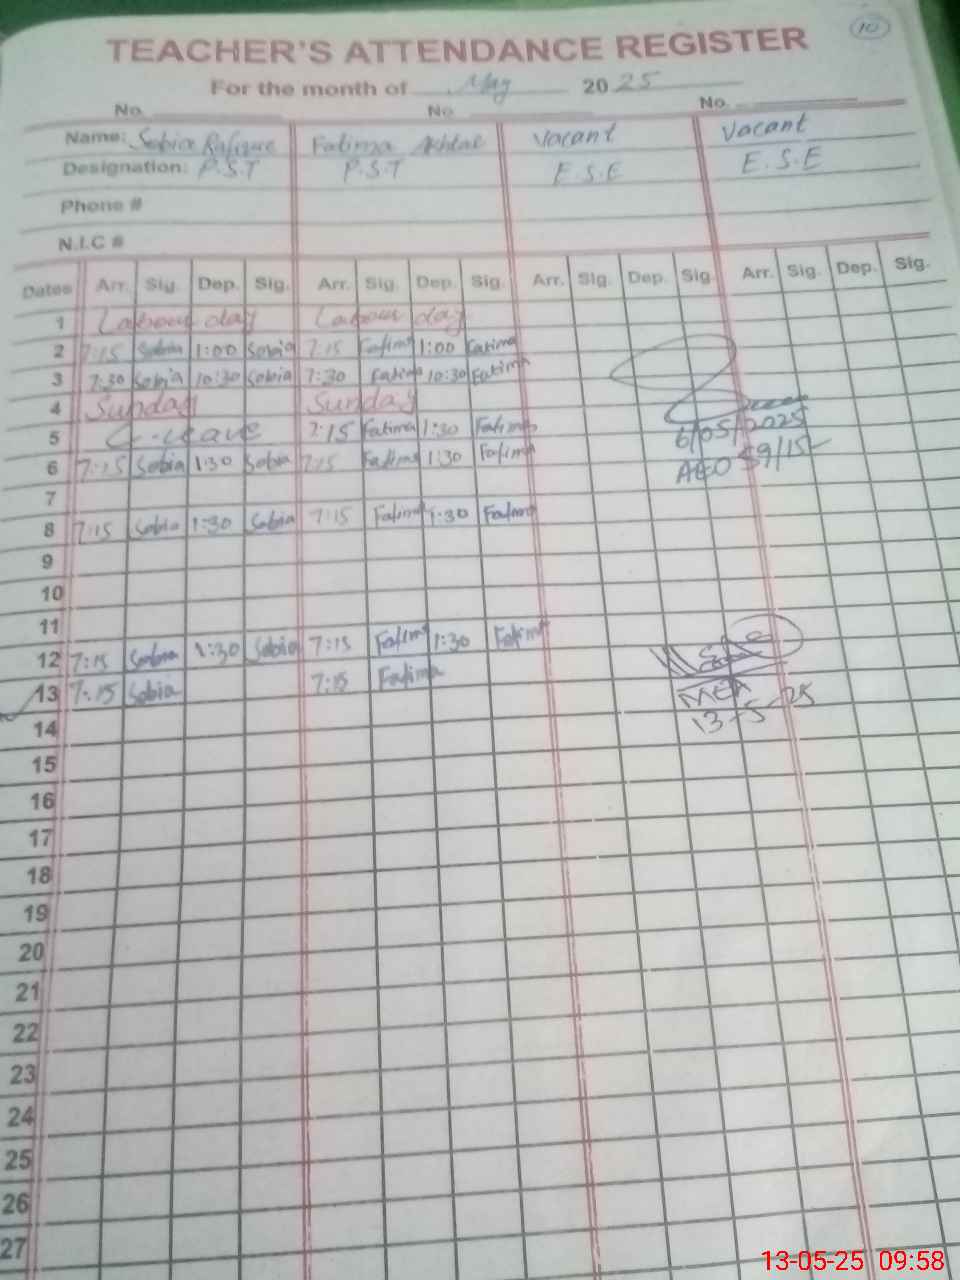 10
TEACHER'S ATTENDANCE REGISTER
For the month of May 2025
No. No. No.
Name: Sobia Rafique Fatima Akhtar Vacant Vacant
Designation: P.S.T P.S.T E.S.E E.S.E
Phone #
N.I.C #
Dates Arr. Sig. Dep. Sig. Arr. Sig. Dep. Sig. Arr. Sig. Dep. Sig. Arr. Sig. Dep. Sig.
1 Labour day Labour day
2 7:15 Sobia 1:00 Sobia 7:15 Fatima 1:00 Fatima
3 7:30 Sobia 10:30 Sobia 7:30 Fatima 10:30 Fatima
4 Sunday Sunday
5 C-leave 7:15 Fatima 1:30 Fatima 6/05/2025
6 7:15 Sobia 1:30 Sobia 7:15 Fatima 1:30 Fatima AEO
7
8 7:15 Sobia 1:30 Sobia 7:15 Fatima 1:30 Fatima
9
10
11
12 7:15 Sobia 1:30 Sobia 7:15 Fatima 1:30 Fatima
13 7:15 Sobia 7:15 Fatima MEA
14 13-5-25
15
16
17
18
19
20
21
22
23
24
25
26
27
13-05-25 09:58